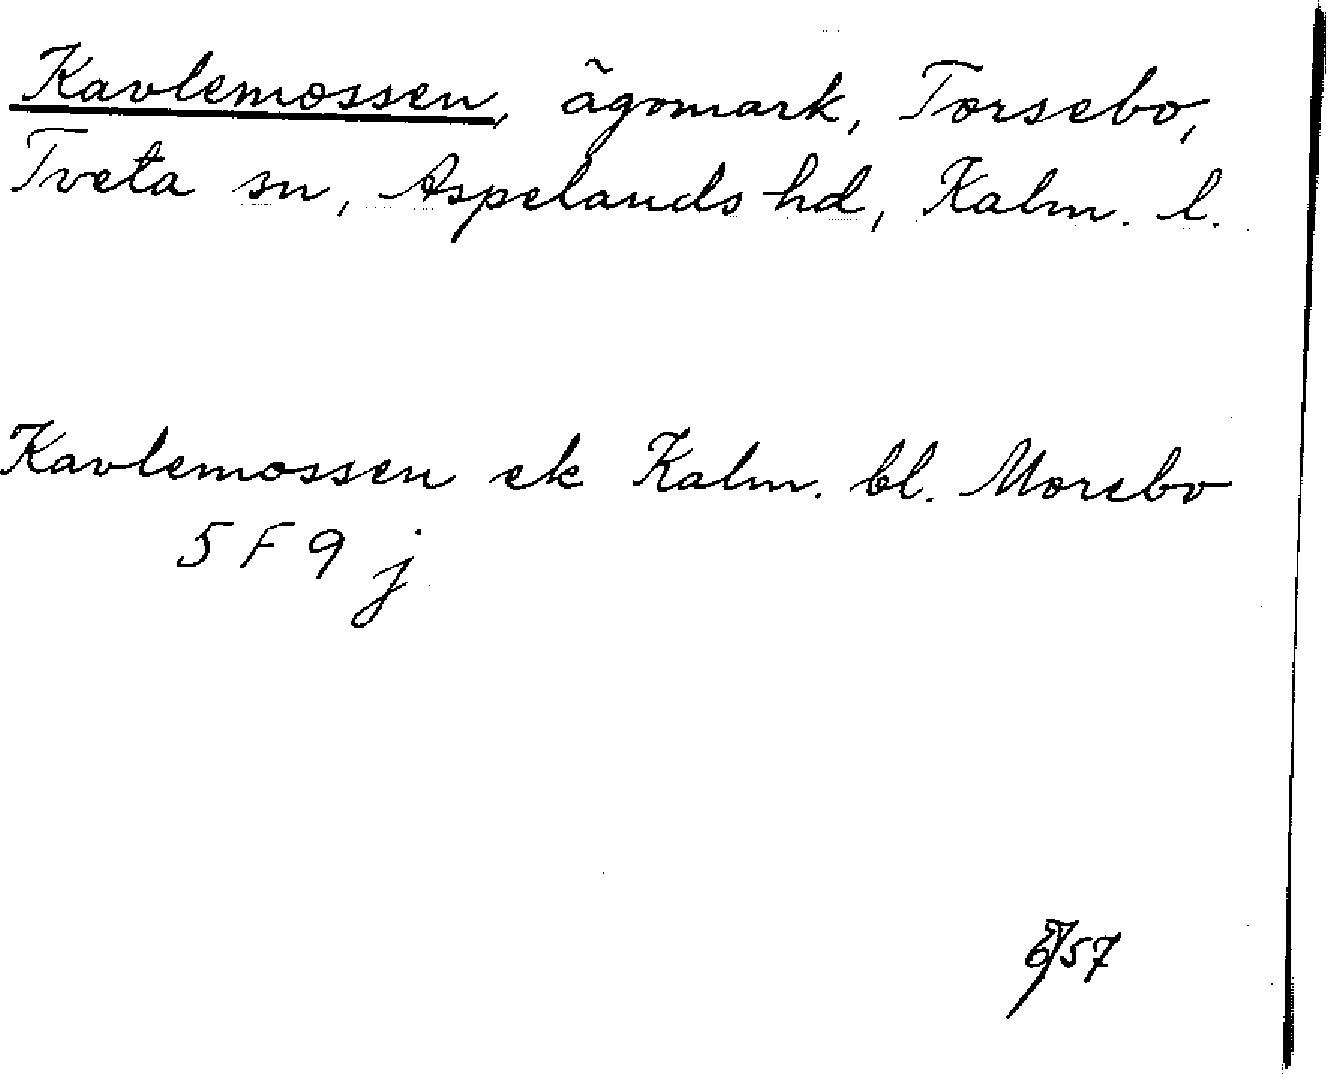 Kavlemossen, ägomark, Torsebo,
Tveta sn, Aspelands hd, Kalm. l.
Kavlemossen ek Kalm. bl. Morebo
5 F 9 j
57